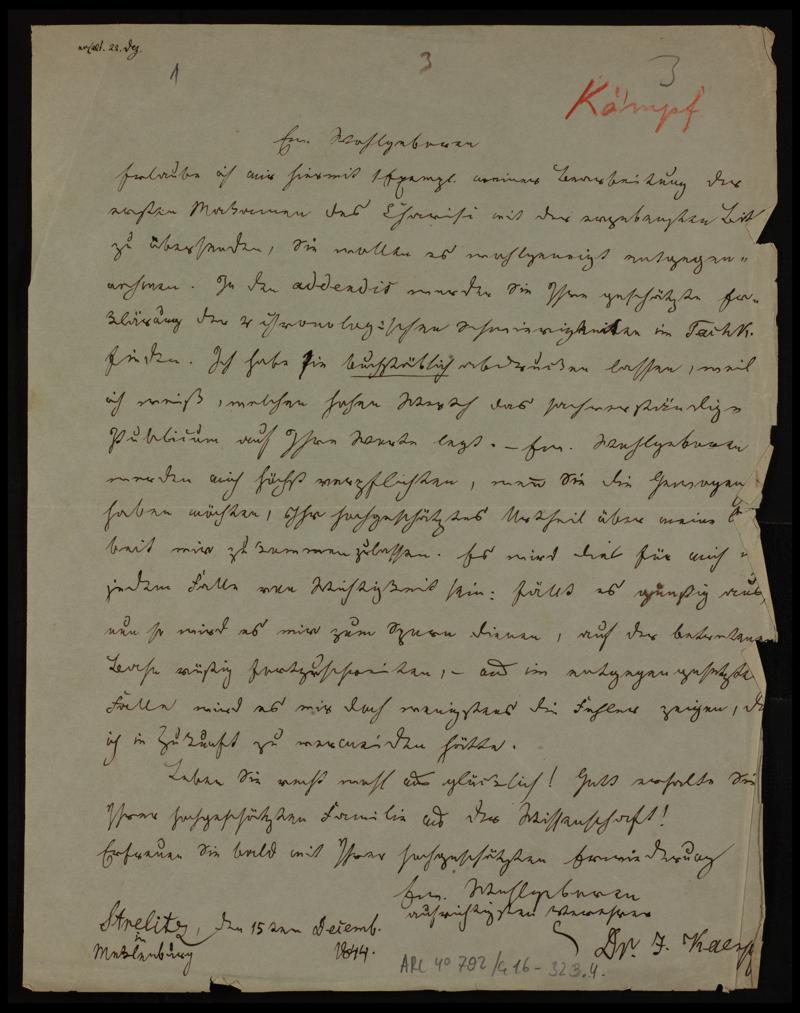 erhalt. 22. Dez.
1 3 3
Kämpf
Ew. Wohlgeboren
erlaube ich mir hiermit 1 Exempl. meiner Bearbeitung der
ersten Makamen des Charisi mit der ergebensten Bitt
zu übersenden, Sie wollen es wohlgeneigt entgegen-
nehmen. In den addendis werden Sie Ihre geschätzte Er-
klärung der chronologischen Schwierigkeiten im Tachk.
finden. Ich habe sie buchstäblich abdrucken lassen, weil
ich weiß, welchen hohen Werth das sachverständige
Publicum auf Ihre Worte legt. – Ew. Wohlgeboren
werden mich höchst verpflichten, wenn Sie die Gewogen
haben möchten, Ihr hochgeschätztes Urtheil über meine
beit mir zukommen zu lassen. Es wird dies für mich
jedem Falle von Wichtigkeit sein: fällt es günstig aus,
nun so wird es mir zum Sporn dienen, auf der betretenen
Bahn rüstig fortzuschreiten, – und im entgegengesetzte
Falle wird es mir doch wenigstens die Fehler zeigen, d
ich in Zukunft zu vermeiden hätte.
Leben Sie recht wohl und glücklich! Gott erhalte Sie
Ihrer hochgeschätzten Familie und der Wissenschaft!
Erfreuen Sie bald mit Ihrer hochgeschätzten Erwiederung
Ew. Wohlgeboren
aufrichtigsten Verehrer
Dr. I. Kaemp
Strelitz, den 15ten Decemb.
in
Meklenburg 1844.
ARC 4° 792/G 16 - 323.4.